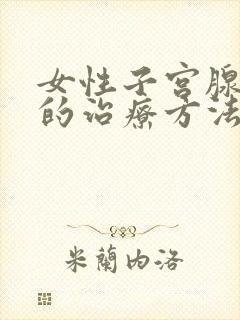 女性子宫腺
的治療方法
米蘭内洛